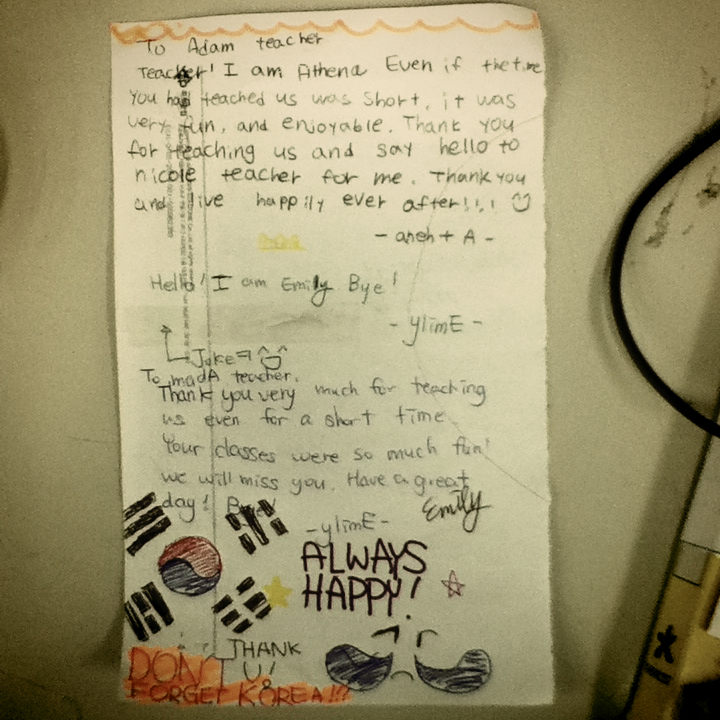 To Adam teacher
Teacher! I am Athena Even if the time
You had teached us was short, it was
very fun, and enjoyable. Thank you
for teaching us and say hello to
nicole teacher for me. Thank you
and live happily ever after!!!!
- aneht A -
Hello! I am Emily Bye!
- ylimE -
Joke
To madA teacher.
Thank you very much for teaching
us even for a short time
Your classes were so much fun!
we will miss you. Have a great
day! Bye!
Emily
- ylimE -
ALWAYS
HAPPY!
THANK
U!
DON'T
FORGET KOREA!!?